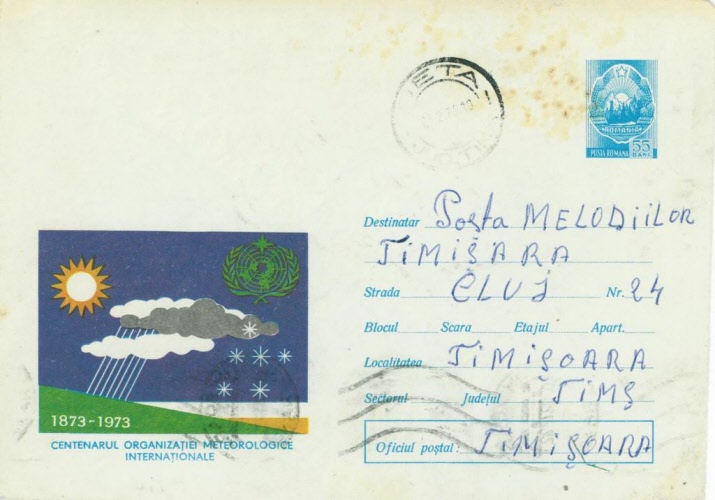 JETA
ROMANIA
POSTA ROMANA 55 BANI
Destinatar Poșta MELODIILOR
TIMIȘARA
Strada CLUJ Nr. 24
Blocul Scara Etajul Apart.
Localitatea TIMIȘOARA
Sectorul Județul TIMȘ
Oficiul poștal: TIMIȘOARA
1873-1973
CENTENARUL ORGANIZAȚIEI METEOROLOGICE
INTERNAȚIONALE